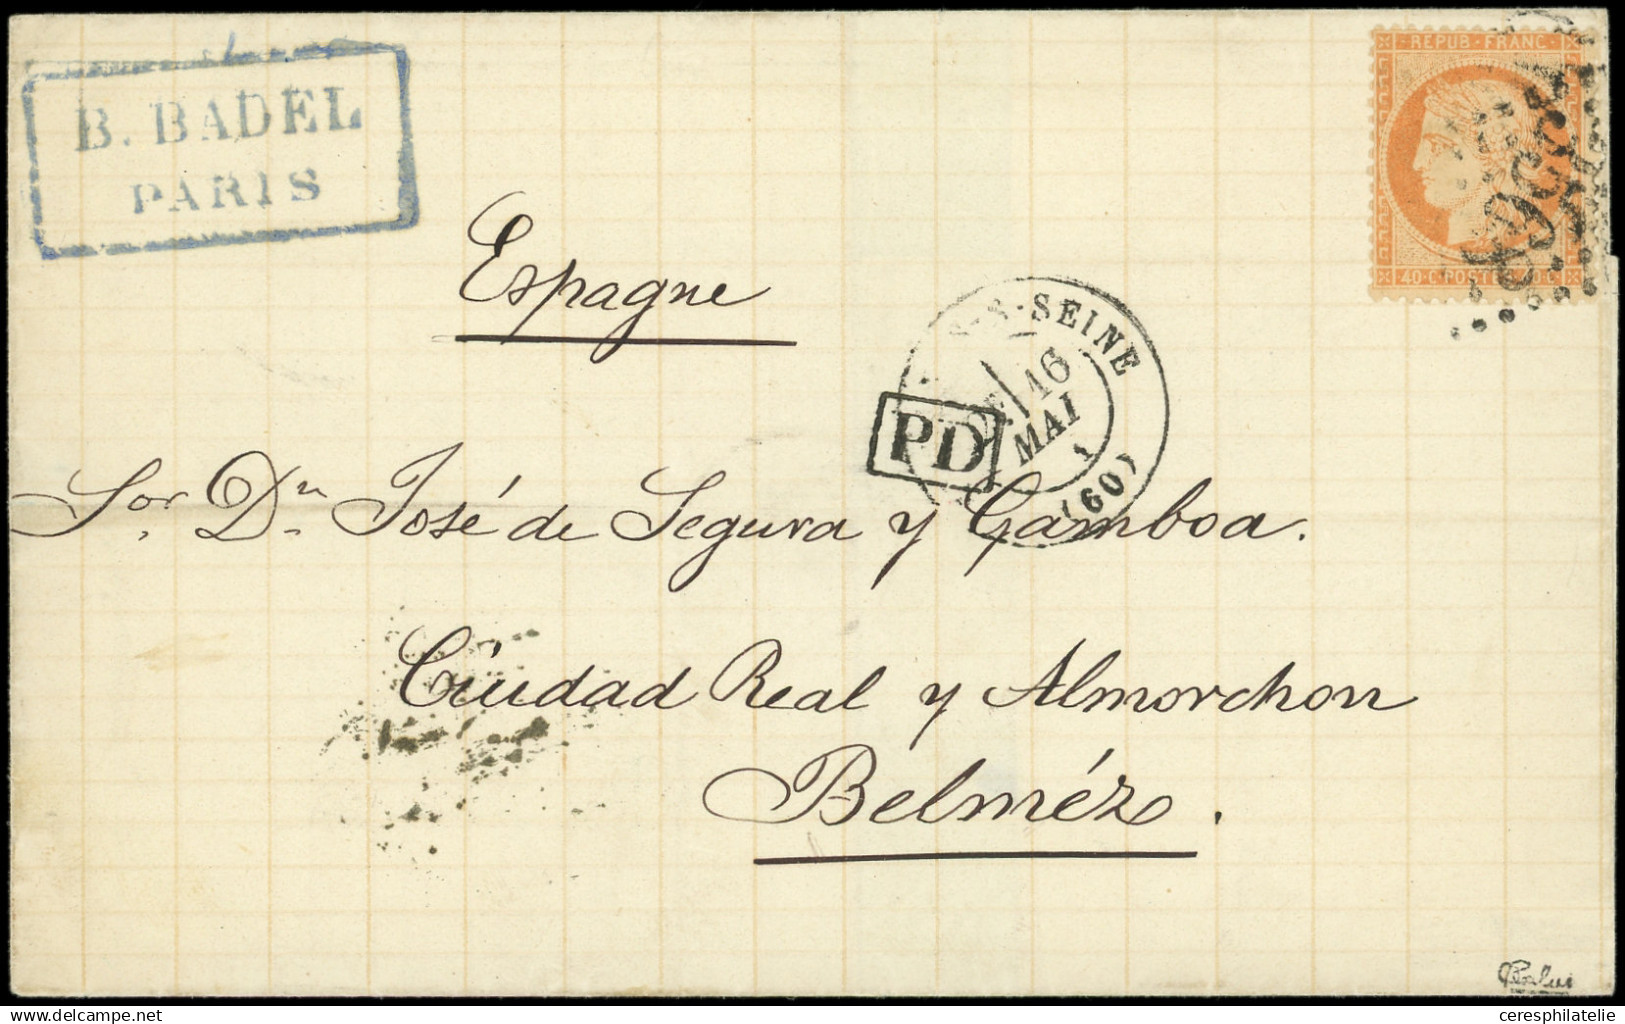 B. BADEL
PARIS
REPUB·FRANC
40·C·POSTES·40·C
Espagne
S·SEINE
16
MAI
(60)
PD
Sor. Dn. José de Segura y Gamboa.
Ciudad Real y Almorchon
Belméz.
ceresphilatelie